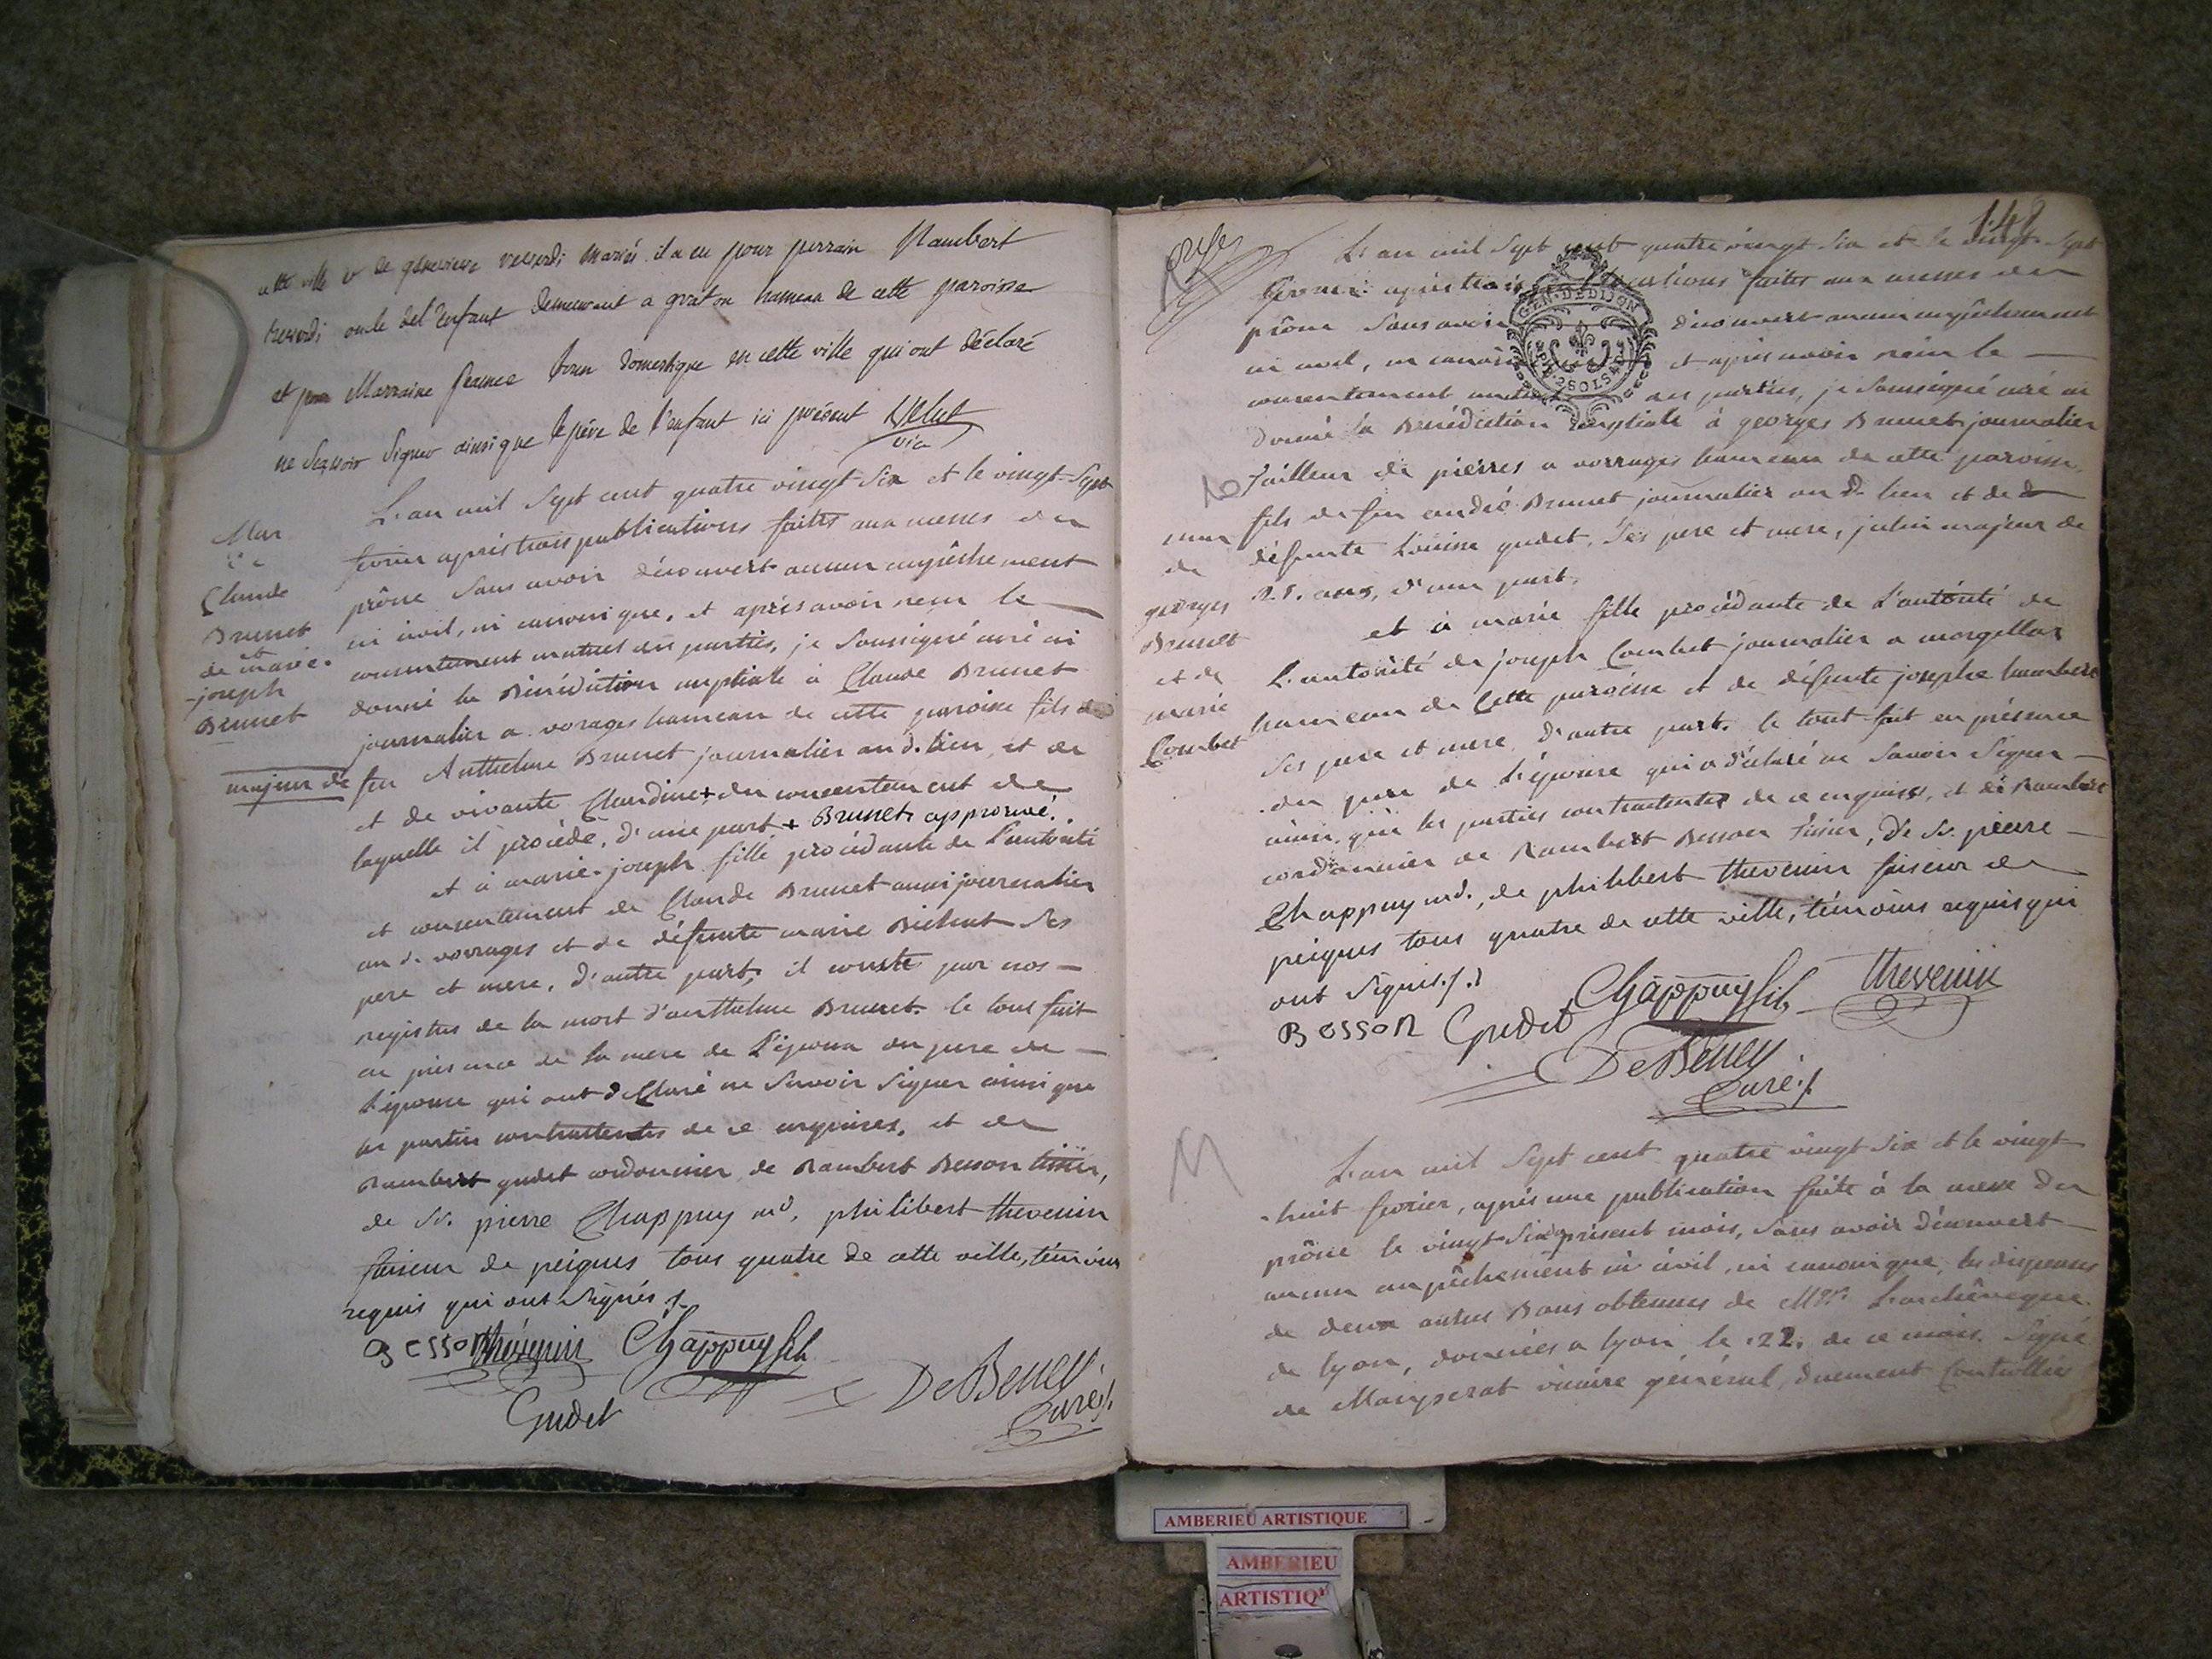 cette ville et de geneviève verserdi Mariés. il a eu pour perrain Rambert
oncle del'enfant demeurant a hameau de cette paroisse
et pour Marraine domestique en cette ville qui ont déclaré
ne sçavoir signer ainsi que le père de l'enfant ici présent
vic
Mar
Claude
Brunet
et
de marie
-joseph
Brunet
L'an mil sept cent quatre vingt-six et le vingt-sept
fevrier après trois publications faites aux messes du
prône sans avoir découvert aucun empêchement
ni civil, ni canonique, et après avoir reçu le
consentement mutuel des parties, je soussigné curé ai
donné la Bénédiction nuptiale à Claude Brunet
journalier a vorages hameau de cette paroisse fils de
majeur de feu Anthelme Brunet journalier au d. lieu, et de
et de vivante Claudine + du consentement de
laquelle il procède, d'une part + Brunet approuvé.
et à marie-joseph fille procédante de l'autorité
et consentement de Claude Brunet aussi journalier
au d. vorrages et de défunte marie ses
pere et mere, d'autre part, il conste par nos
registres de la mort d'anthelme Brunet. le tout fait
en présence de la mere de l'époux du pere de
l'épouse qui ont déclaré ne savoir signer ainsi que
les parties contractantes de ce enquises, et de
Rambert gudet cordonnier, de Rambert Besson tissier,
de Sr. pierre Chappuy md, philibert thevenin
faiseur de peignes tous quatre de cette ville, témoins
requis qui ont signés
Besson thévenin Chappuy fils
Gudet DeBeney
Curé
148
L'an mil sept cent quatre vingt six et le vingt-sept
fevrier après trois publications faites aux messes du
prône sans avoir découvert aucun empêchement
ni civil, ni et après avoir reçu le
consentement des parties, je soussigné curé ai
donné la Bénédiction nuptiale à georges Brunet journalier
Tailleur de pierres a vorrages hameau de cette paroisse,
fils de feu andré Brunet journalier au d. lieu et de
défunte Louise gudet, ses pere et mere, majeur de
ans, d'une part,
GEN. DE DIJON
2 SOLS
mar
de
georges
Brunet
et de
marie
Combet
et à marie fille procédante de l'autorité de
L'autorité de joseph Combet journalier a
hameau de cette paroisse et de défunte josephe humbert
ses pere et mere d'autre part. le tout fait en présence
du pere de l'épouse qui a déclaré ne savoir signer
ainsi que les parties contractantes de ce enquises, et de Rambert
cordonnier de Rambert Besson tissier, de Sr. pierre
Chappuy md., de philibert thevenin faiseur de
peignes tous quatre de cette ville, témoins requis qui
ont signés
Besson Gudet Chappuy fils thevenin
DeBeney
Curé
M
L'an mil sept cent quatre vingt six et le vingt
-huit fevrier, après une publication faite à la messe du
prône le vingt-six présent mois, sans avoir découvert
aucun empêchement ni civil, ni canonique, les dispenses
de deux autres Bans obtenues de Mgr. L'archêveque
de lyon, données a lyon le 22. de ce mois. Signé
de vicaire général, duement Controllée
AMBERIEU ARTISTIQUE
AMBERIEU
ARTISTIQ